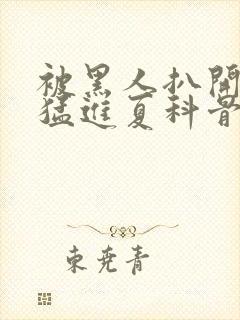 被黑人扒開
猛進夏科骨
東尭青